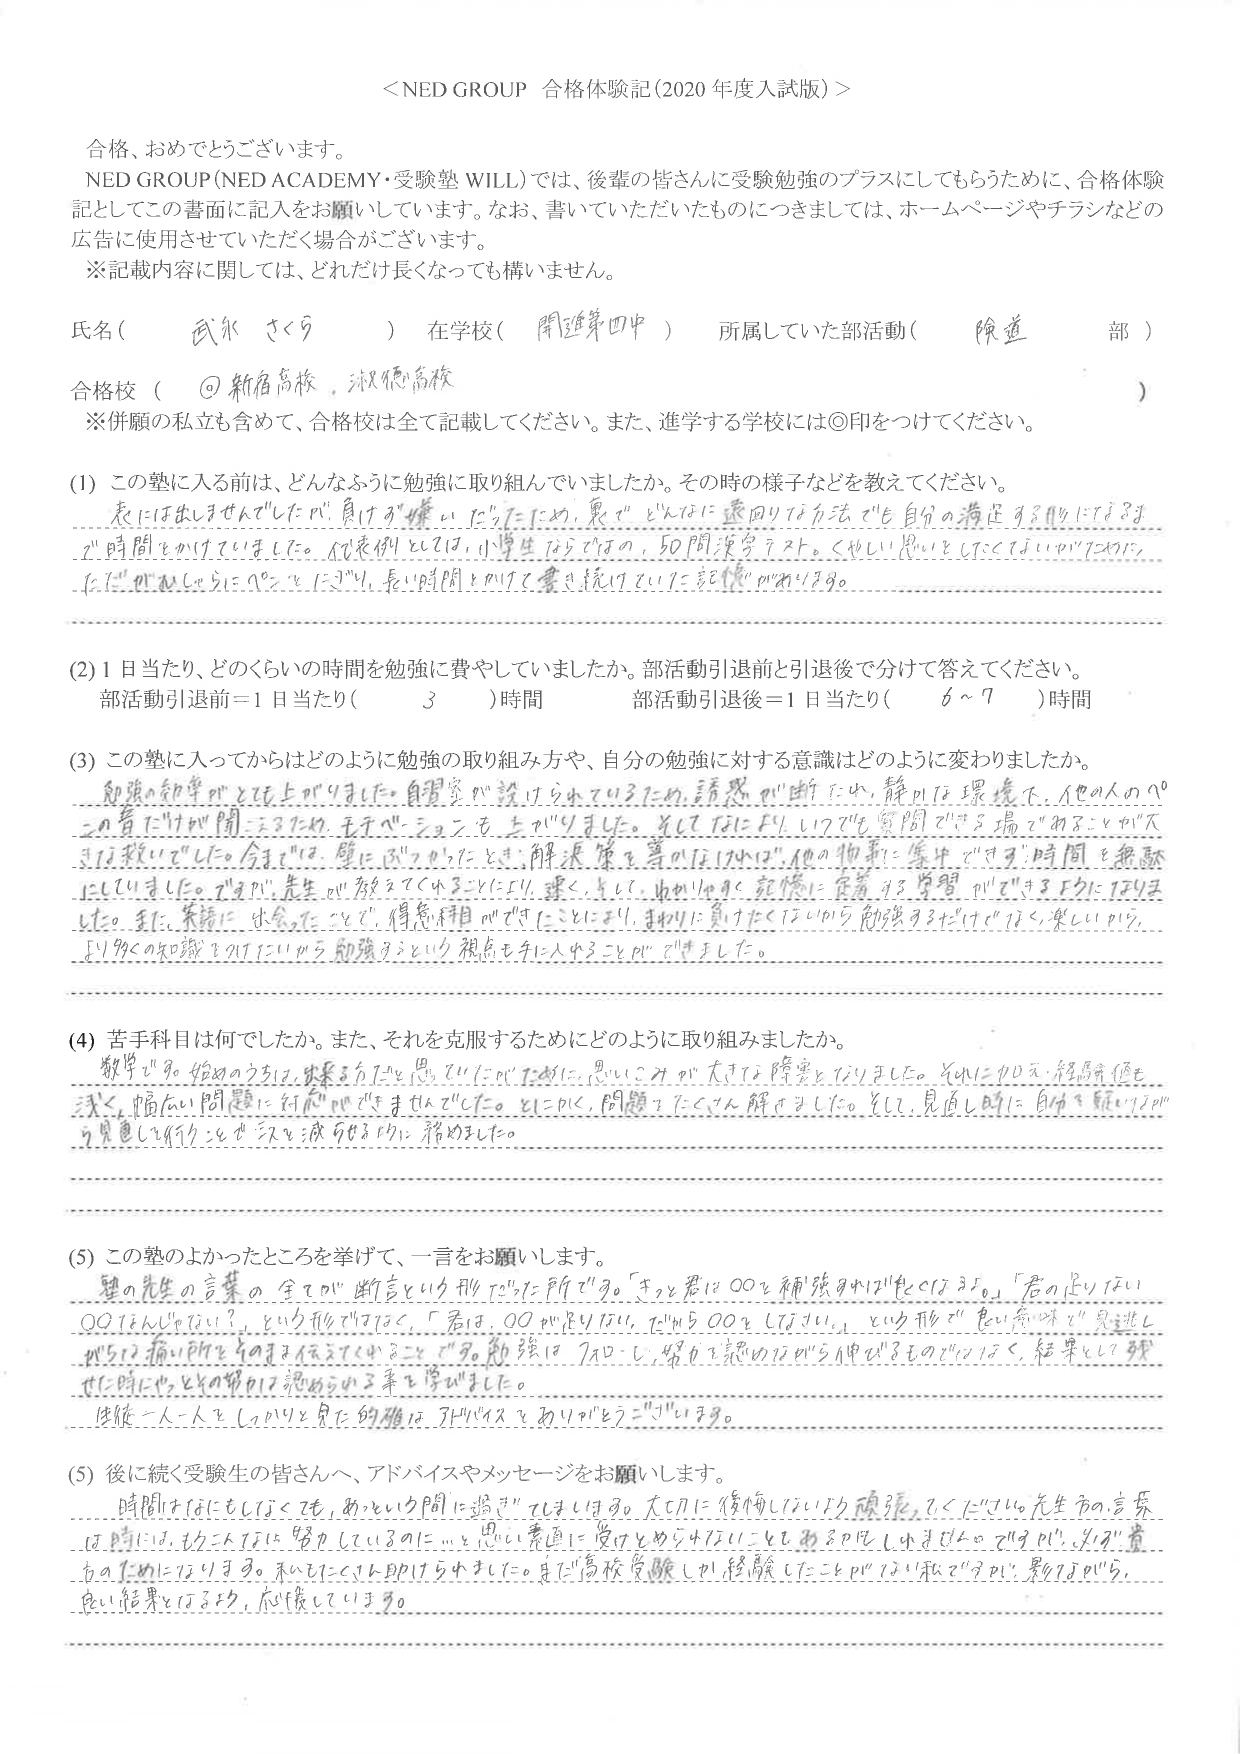 ＜NED GROUP 合格体験記（2020 年度入試版）＞
合格、おめでとうございます。
NED GROUP（NED ACADEMY・受験塾 WILL）では、後輩の皆さんに受験勉強のプラスにしてもらうために、合格体験
記としてこの書面に記入をお願いしています。なお、書いていただいたものにつきましては、ホームページやチラシなどの
広告に使用させていただく場合がございます。
※記載内容に関しては、どれだけ長くなっても構いません。
氏名（ 武永 さくら ） 在学校（ 開進第四中 ） 所属していた部活動（ 険道 部 ）
合格校 （ ◎新宿高校、淑徳高校 ）
※併願の私立も含めて、合格校は全て記載してください。また、進学する学校には◎印をつけてください。
(1) この塾に入る前は、どんなふうに勉強に取り組んでいましたか。その時の様子などを教えてください。
表には出しませんでしたが、負けず嫌いだったため、裏でどんなに遠回りな方法でも自分の満足する形になるま
で時間をかけていました。代表例としては、小学生ならではの、50問漢字テスト。くやしい思いをしたくないがために、
ただがむしゃらにペンをにぎり、長い時間をかけて書き続けていた記憶があります。
(2) 1 日当たり、どのくらいの時間を勉強に費やしていましたか。部活動引退前と引退後で分けて答えてください。
部活動引退前＝1 日当たり（ 3 ）時間 部活動引退後＝1 日当たり（ 6～7 ）時間
(3) この塾に入ってからはどのように勉強の取り組み方や、自分の勉強に対する意識はどのように変わりましたか。
勉強の効率がとても上がりました。自習室が設けられているため、誘惑が断たれ、静かな環境下、他の人のペ
ンの音だけが聞こえるため、モチベーションも上がりました。そしてなにより、いつでも質問できる場であることが大
きな救いでした。今までは、壁にぶつかったとき、解決策を導かなければ、他の物事に集中できず時間を無駄
にしていました。ですが、先生が教えてくれることにより、速く、そして、わかりやすく記憶に定着する学習ができるようになりま
した。また、英語に出会ったことで、得意科目ができたことにより、まわりに負けたくないから勉強するだけでなく、楽しいから、
より多くの知識をつけたいから勉強するという視点も手に入れることができました。
(4) 苦手科目は何でしたか。また、それを克服するためにどのように取り組みましたか。
数学です。始めのうちは、出来る方だと思っていたがために、思いこみが大きな障害となりました。それに加え、経験値も
浅く、幅広い問題に対応ができませんでした。とにかく、問題をたくさん解きました。そして、見直し時に自分を疑いなが
ら見直しを行うことでミスを減らせるように務めました。
(5) この塾のよかったところを挙げて、一言をお願いします。
塾の先生の言葉の全てが断言という形だった所です。「きっと君は○○を補強すれば良くなるよ。」「君の足りない
○○なんじゃない？」という形ではなく、「君は、○○が足りない。だから○○をしなさい。」という形で良い意味で見逃し
がちな痛い所をそのまま伝えてくれることです。勉強はフォローし、努力を認めながら伸びるものではなく、結果として残
せた時にやっとその努力は認められる事を学びました。
生徒一人一人をしっかりと見た的確なアドバイスをありがとうございます。
(5) 後に続く受験生の皆さんへ、アドバイスやメッセージをお願いします。
時間はなにもしなくても、あっという間に過ぎてしまいます。大切に後悔しないよう頑張ってください。先生方の言葉
は時には、もうこんなに努力しているのに…と思い素直に受けとめられないこともあるかもしれません。ですが、必ず貴
方のためになります。私もたくさん助けられました。まだ高校受験しか経験したことがない私ですが、影ながら、
良い結果となるよう、応援しています。